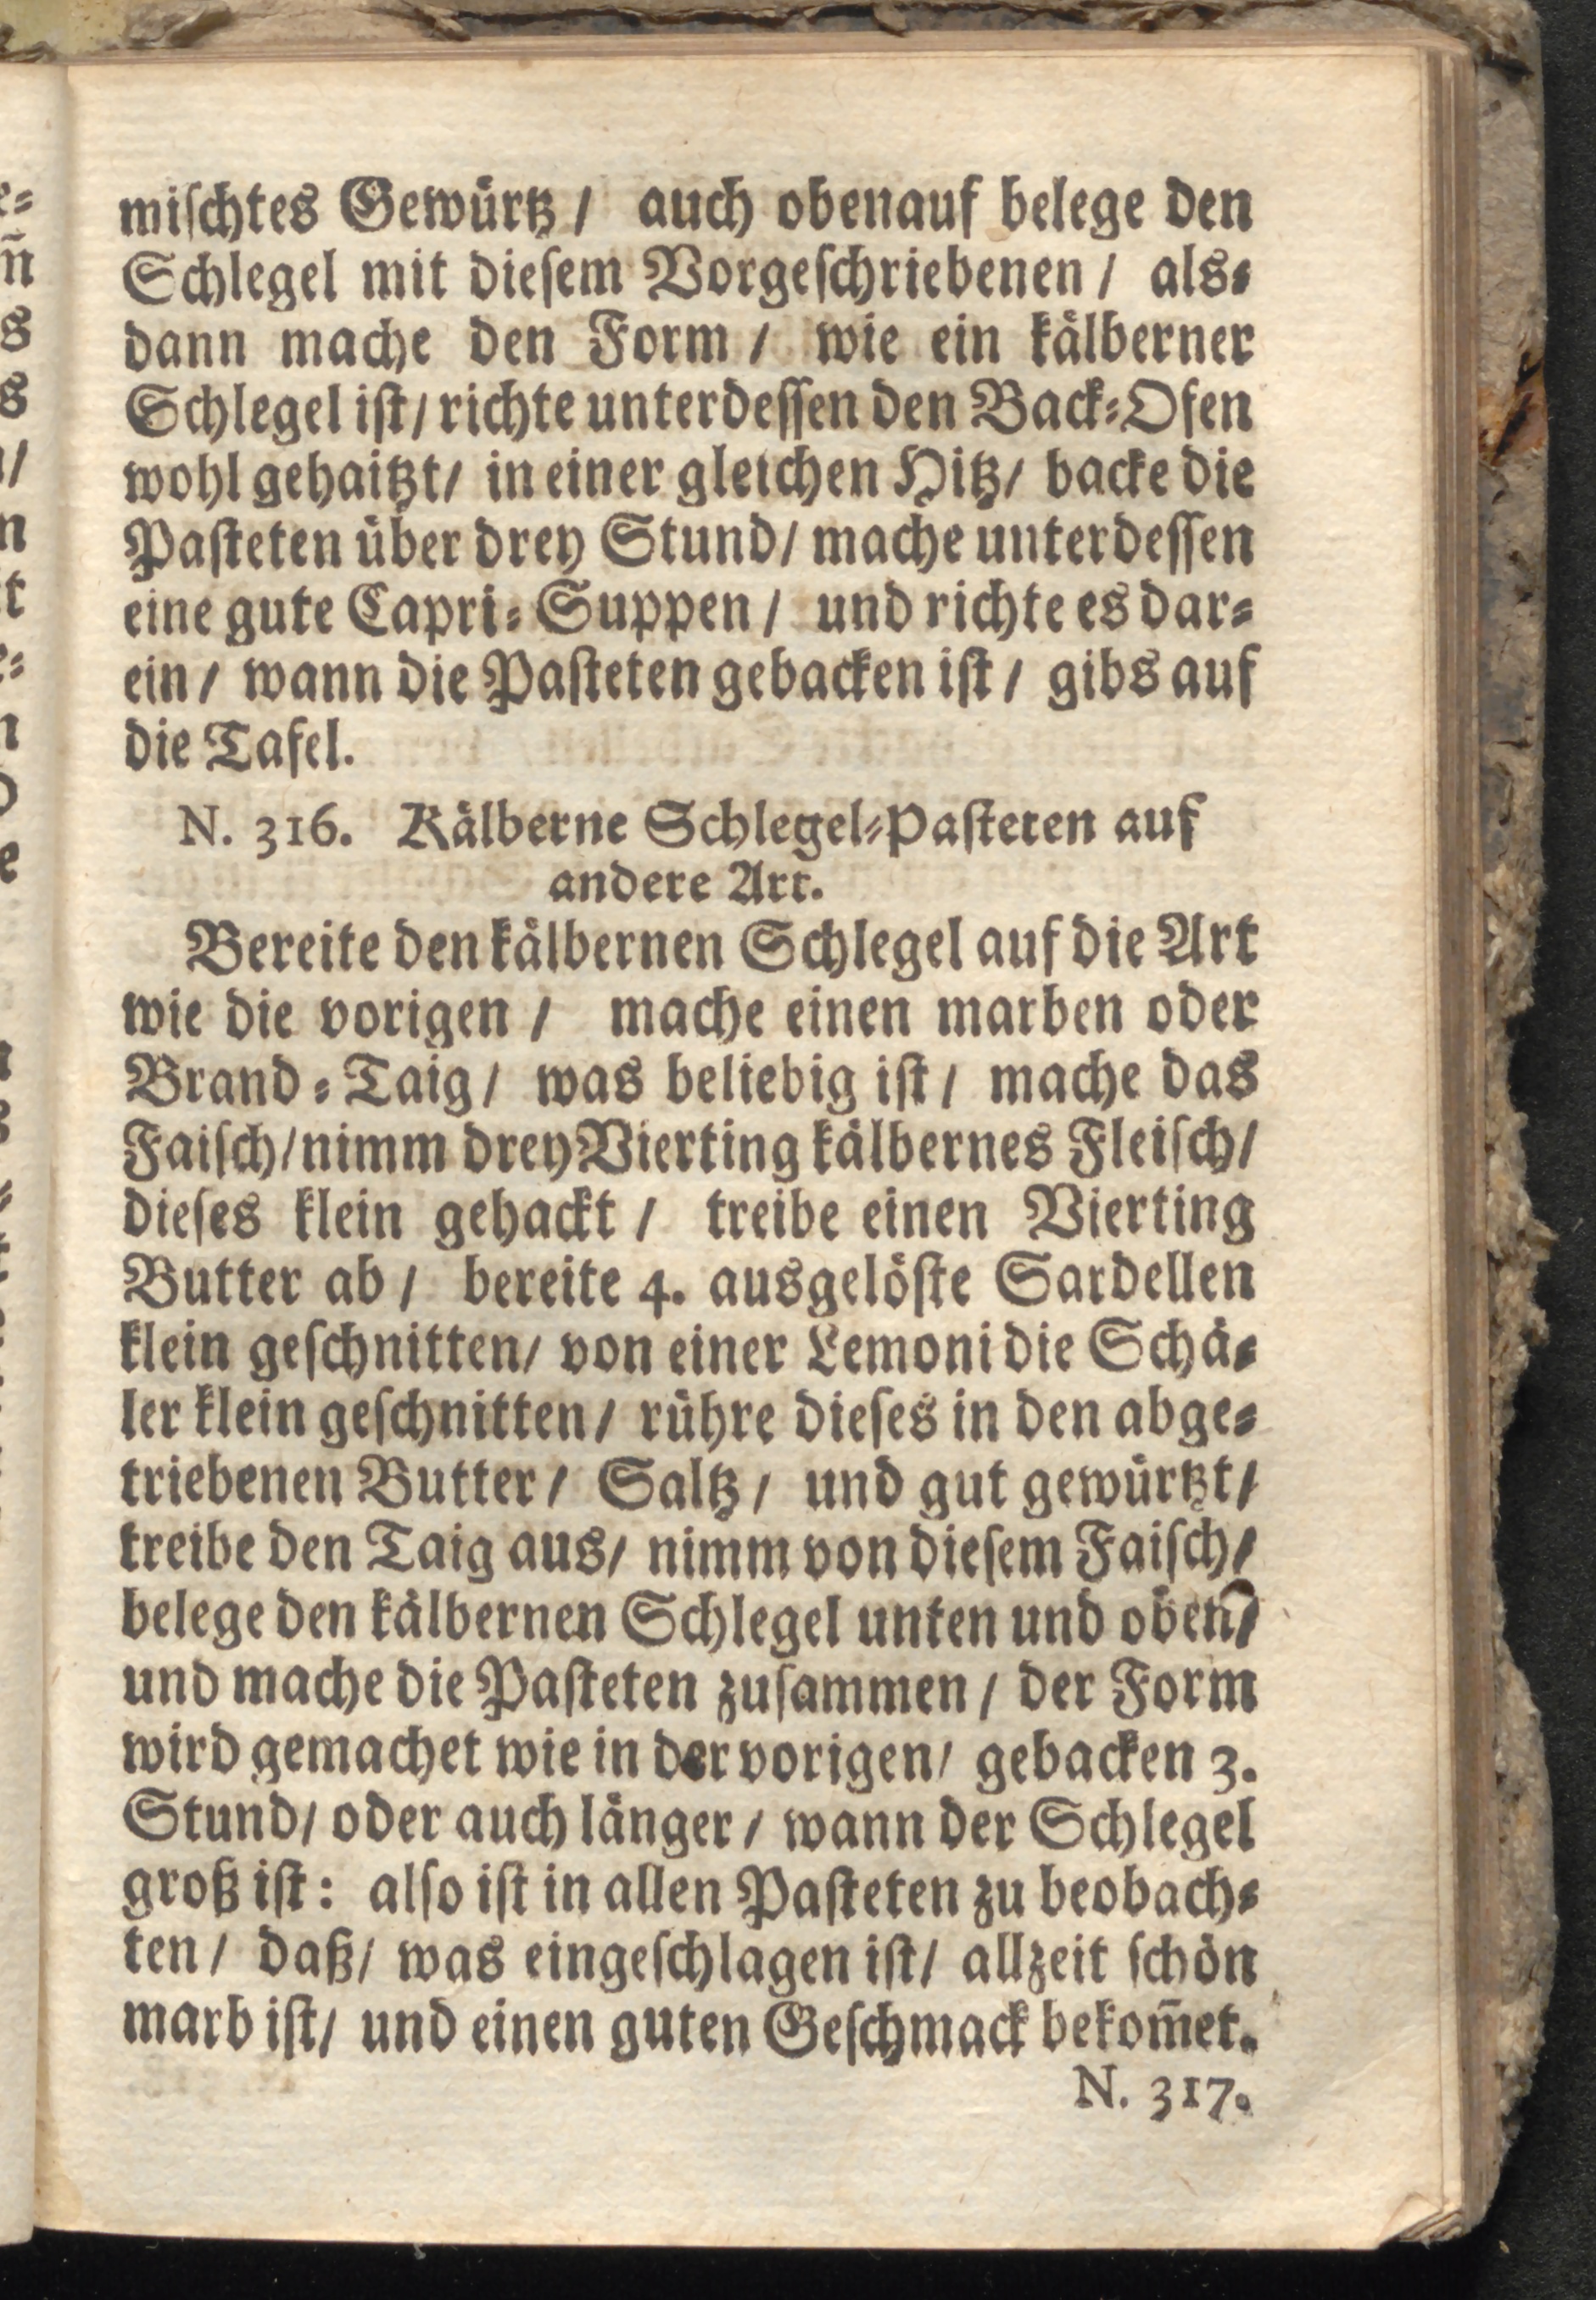 mischtes Gewürtz / auch obenauf belege den
Schlegel mit diesem Vorgeschriebenen / als-
dann mache den Form / wie ein kälberner
Schlegel ist / richte unterdessen den Back-Ofen
wohl gehaitzt / in einer gleichen Hitz / backe die
Pasteten über drey Stund / mache unterdessen
eine gute Capri-Suppen / und richte es dar-
ein / wann die Pasteten gebacken ist / gibs auf
die Tafel.
N. 316. Kälberne Schlegel-Pasteten auf
andere Art.
Bereite den kälbernen Schlegel auf die Art
wie die vorigen / mache einen marben oder
Brand-Taig / was beliebig ist / mache das
Faisch / nimm drey Vierting kälbernes Fleisch /
dieses klein gehackt / treibe einen Vierting
Butter ab / bereite 4. ausgelöste Sardellen
klein geschnitten / von einer Lemoni die Schä-
ler klein geschnitten / rühre dieses in den abge-
triebenen Butter / Saltz / und gut gewürtzt /
treibe den Taig aus / nimm von diesem Faisch /
belege den kälbernen Schlegel unten und oben /
und mache die Pasteten zusammen / der Form
wird gemachet wie in der vorigen / gebacken 3.
Stund / oder auch länger / wann der Schlegel
groß ist : also ist in allen Pasteten zu beobach-
ten / daß / was eingeschlagen ist / allzeit schön
marb ist / und einen guten Geschmack bekom̄et.
N. 317.